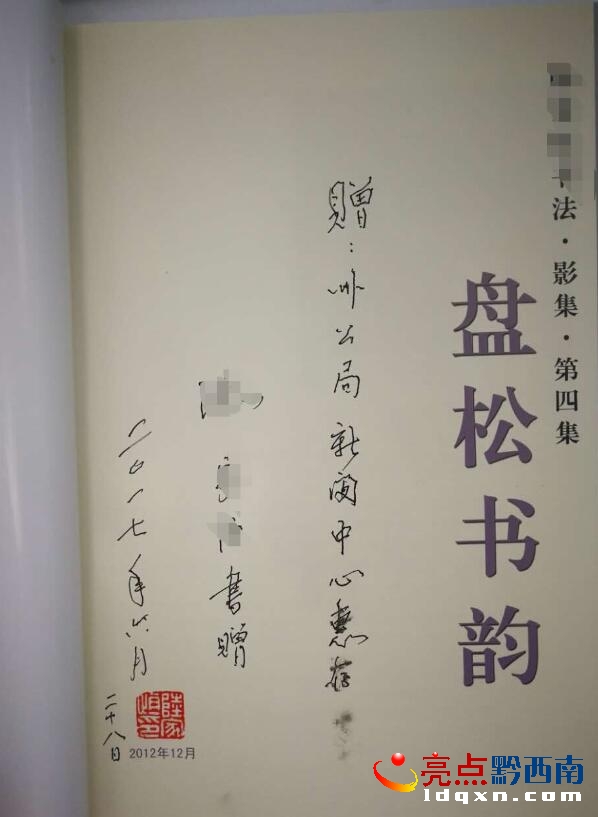 法·影集·第四集
盘松书韵
赠：州公局新闻中心惠存
书赠
二〇一七年六月
二十八日
2012年12月
亮点黔西南
ldqxn.com